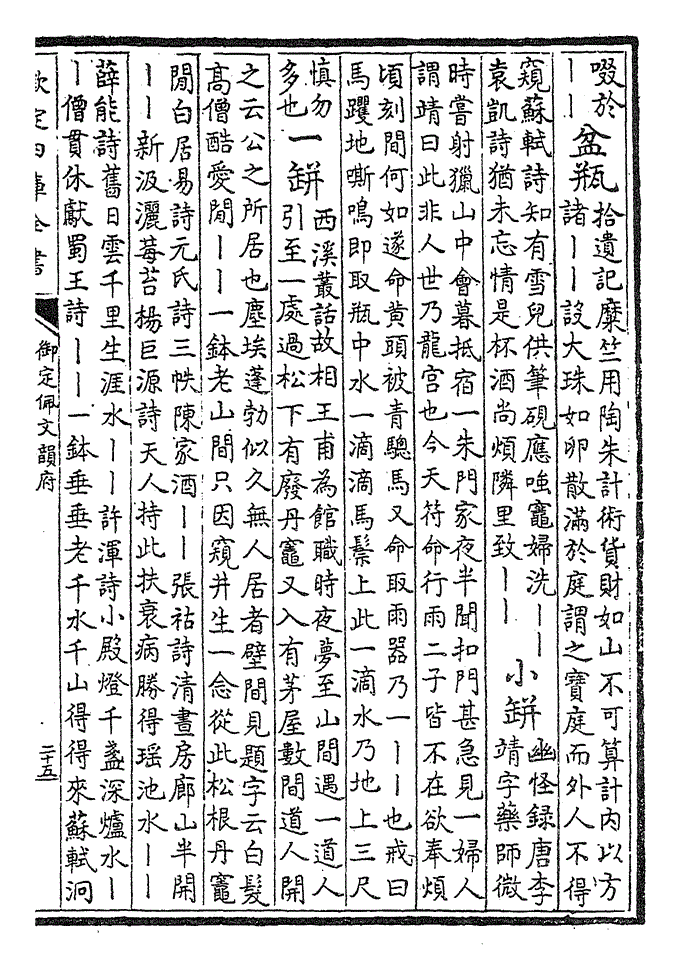 啜於
丨丨
盆瓶
拾遺記糜竺用陶朱計術貨財如山不可算計内以方
諸丨丨設大珠如卵散滿於庭謂之寶庭而外人不得
窺蘇軾詩知有雪兒供筆硯應嗤竈婦洗丨丨
袁凱詩猶未忘情是杯酒尚煩隣里致丨丨
小缾
幽怪録唐李
靖字藥師微
時嘗射獵山中會暮抵宿一朱門家夜半聞扣門甚急見一婦人
謂靖曰此非人世乃龍宮也今天符命行雨二子皆不在欲奉煩
頃刻間何如遂命黄頭被青驄馬又命取雨器乃一丨丨也戒曰
馬躩地嘶鳴即取瓶中水一滴滴馬鬃上此一滴水乃地上三尺
慎勿
多也
一缾
西溪叢話故相王甫為館職時夜夢至山間遇一道人
引至一處過松下有廢丹竈又入有茅屋數間道人開
之云公之所居也塵埃蓬勃似久無人居者壁間見題字云白髮
高僧酷愛閒丨丨一鉢老山間只因窺井生一念從此松根丹竈
閒白居易詩元氏詩三帙陳家酒丨丨張祜詩清晝房廊山半開
丨丨新汲灑莓苔楊巨源詩天人持此扶衰病勝得瑶池水丨丨
薛能詩舊日雲千里生涯水丨丨許渾詩小殿燈千盞深爐水丨
丨僧貫休獻蜀王詩丨丨一鉢垂垂老千水千山得得來蘇軾洞
欽定四庫全書
御定佩文韻府
二十五